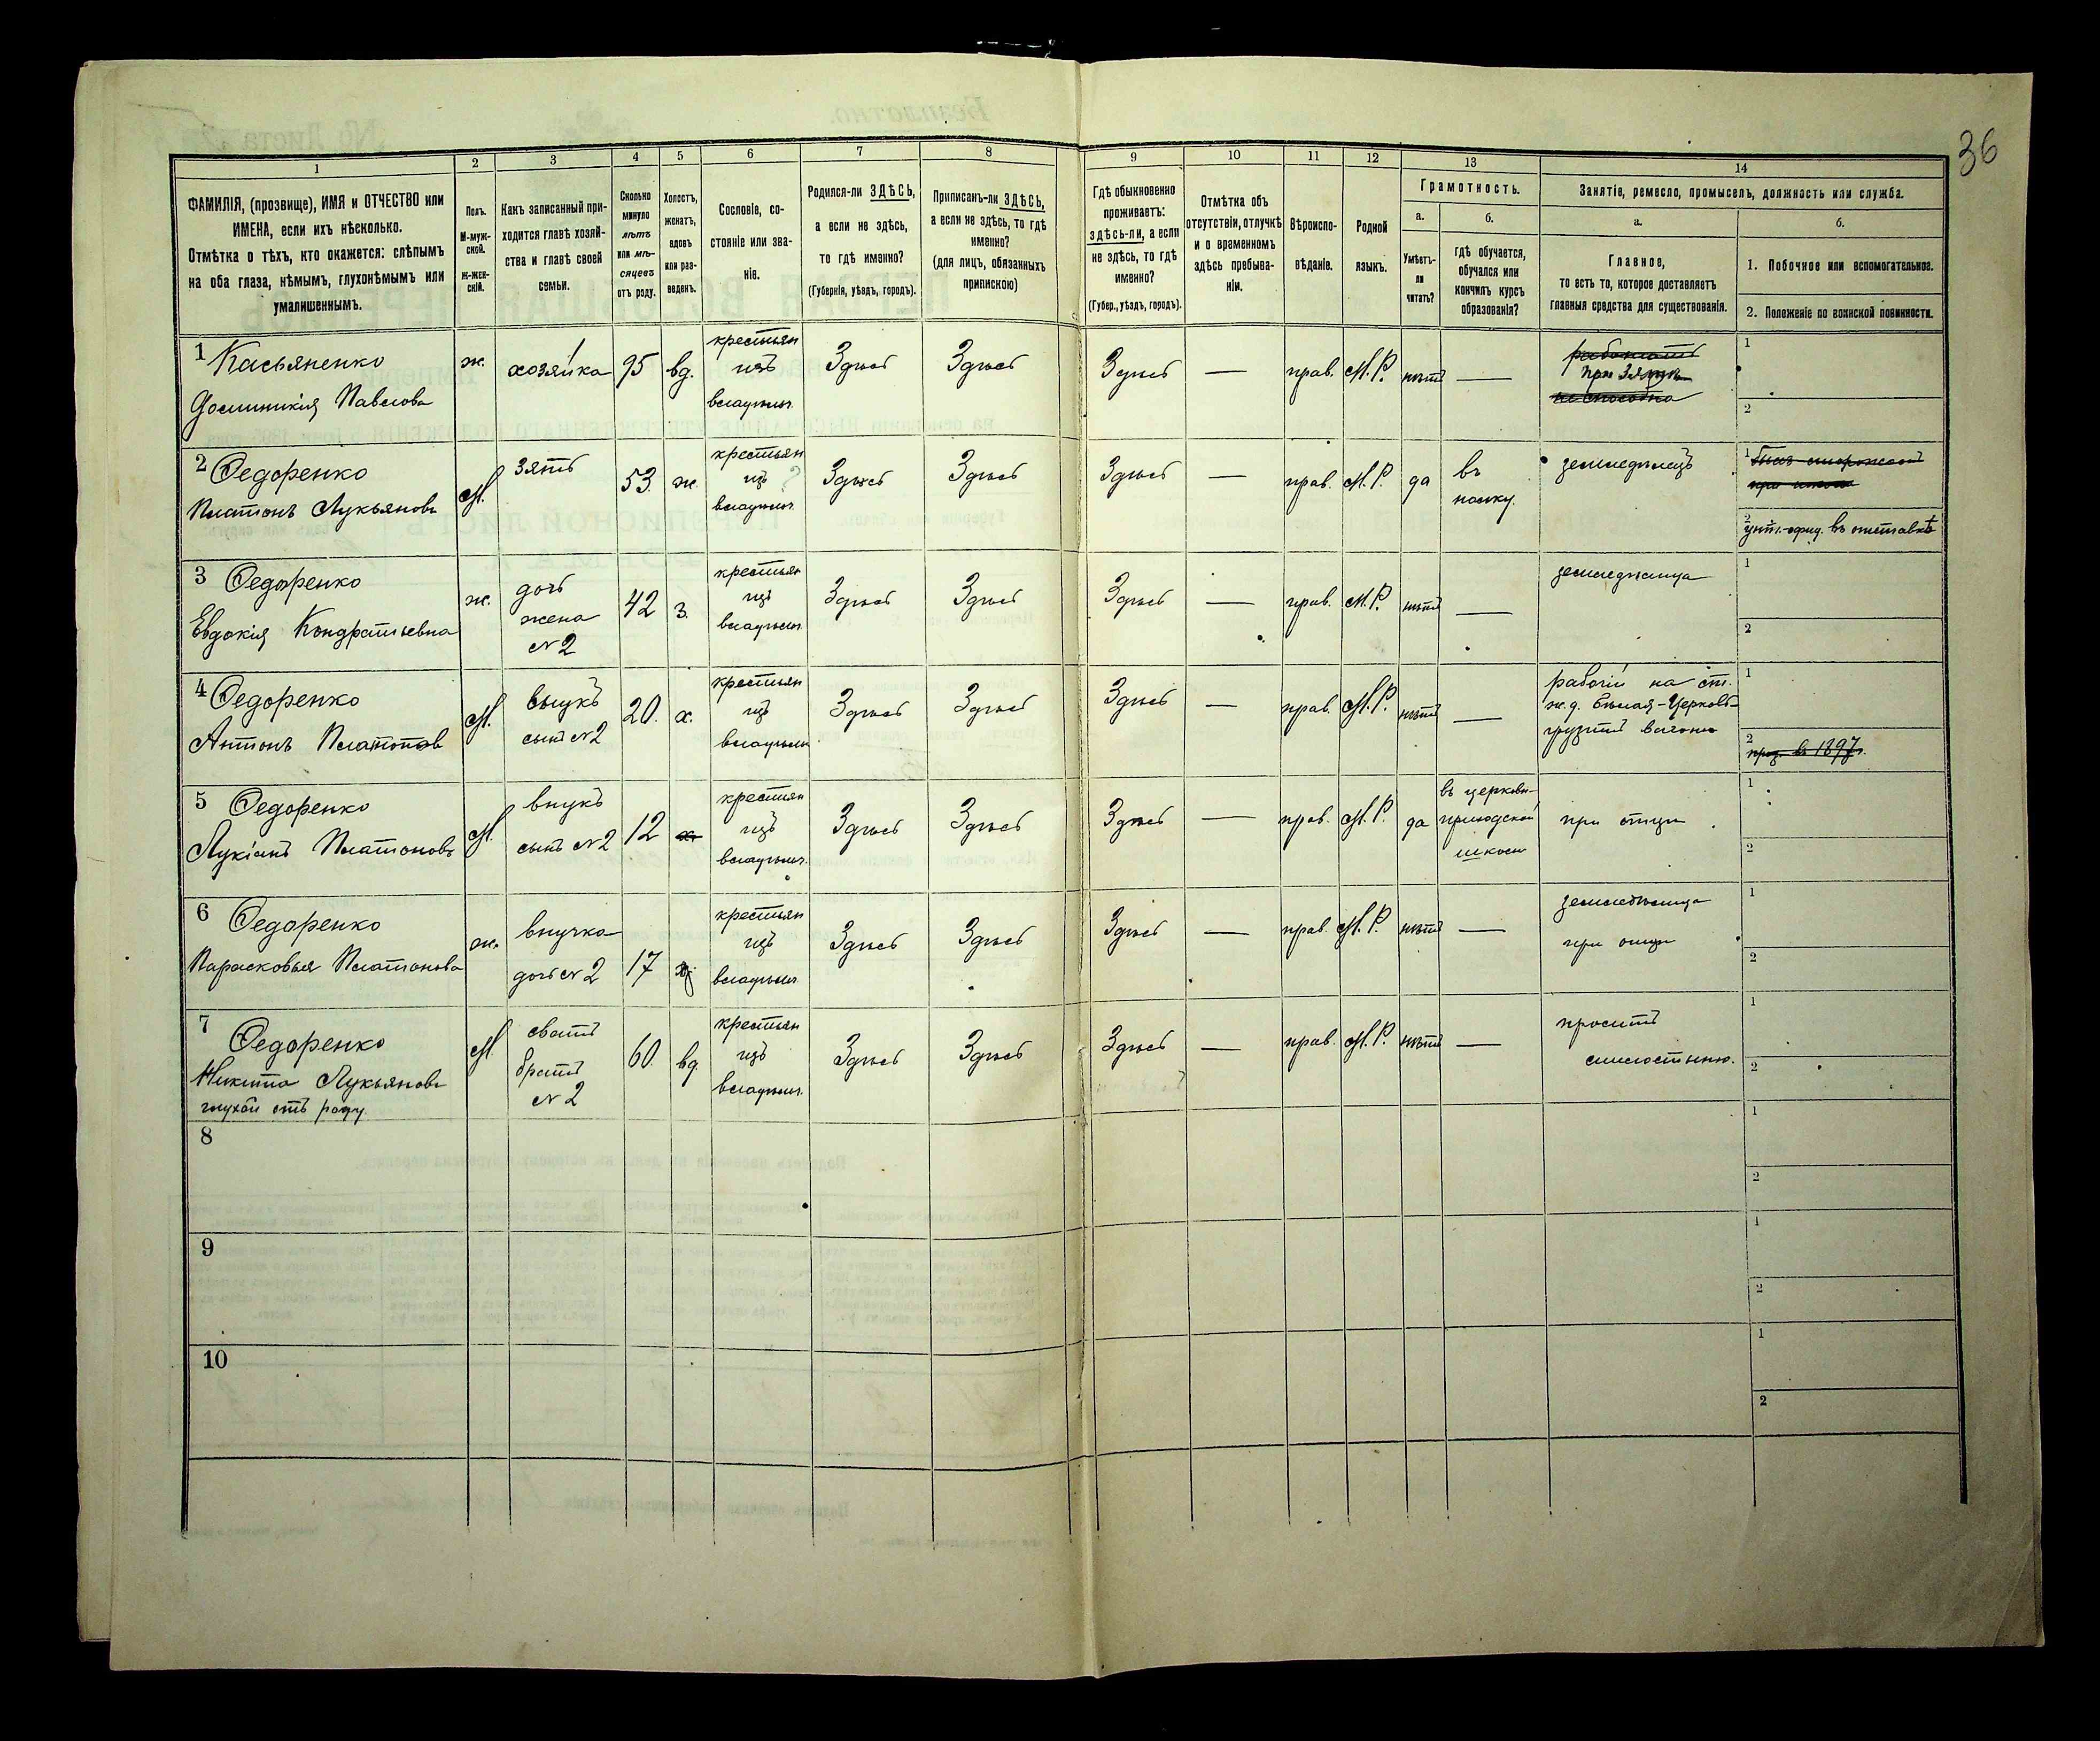 36
1 2 3 4 5 6 7 8 9 10 11 12 13 14
ФАМИЛІЯ, (прозвище), ИМЯ и ОТЧЕСТВО или
ИМЕНА, если ихъ нѣсколько.
Отмѣтка о тѣхъ, кто окажется: слѣпымъ
на оба глаза, нѣмымъ, глухонѣмымъ или
умалишеннымъ.
Полъ.
М-муж-
ской.
ж-жен-
скій.
Какъ записанный при-
ходится главѣ хозяй-
ства и главѣ своей
семьи.
Сколько
минуло
лѣтъ
или мѣ-
сяцевъ
отъ роду.
Холостъ,
женатъ,
вдовъ
или раз-
веденъ.
Сословіе, со-
стояніе или зва-
ніе.
Родился-ли ЗДѢСЬ,
а если не здѣсь,
то гдѣ именно?
(Губернія, уѣздъ, городъ).
Приписанъ-ли ЗДѢСЬ,
а если не здѣсь, то гдѣ
именно?
(для лицъ, обязанныхъ
припискою)
Гдѣ обыкновенно
проживаетъ:
здѣсь-ли, а если
не здѣсь, то гдѣ
именно?
(Губер., уѣздъ, городъ).
Отмѣтка объ
отсутствіи, отлучкѣ
и о временномъ
здѣсь пребыва-
ніи.
Вѣроиспо-
вѣданіе.
Родной
языкъ.
Грамотность.
а.
Умѣетъ-
ли
читать?
б.
Гдѣ обучается,
обучался или
кончилъ курсъ
образованія?
Занятіе, ремесло, промыселъ, должность или служба.
а.
Главное,
то есть то, которое доставляетъ
главныя средства для существованія.
б.
1. Побочное или вспомогательное.
2. Положеніе по воинской повинности.
1 Касьяненко
Домникія Павлова
ж.
хозяйка
95
вд.
крестьян
изъ
владѣльч.
Здѣсь
Здѣсь
Здѣсь
—
прав.
М.Р.
нѣтъ
—
работать
при зятѣ
не способна
1
2
2 Федоренко
Платонъ Лукьяновъ
М.
зять
53.
ж.
крестьян
изъ
владѣльч.
Здѣсь
Здѣсь
Здѣсь
—
прав.
М.Р.
да
въ
полку.
земледѣлецъ
1
при школѣ
2
унт.-офиц. въ отставкѣ
3 Федоренко
Евдокія Кондратьевна
ж.
дочь
жена
№2
42
з.
крестьян
изъ
владѣльч.
Здѣсь
Здѣсь
Здѣсь
—
прав.
М.Р.
нѣтъ
—
земледѣлица
1
2
4 Федоренко
Антонъ Платоновъ
М.
внукъ
сынъ №2
20.
х.
крестьян
изъ
владѣльч.
Здѣсь
Здѣсь
Здѣсь
—
прав.
М.Р.
нѣтъ
—
рабочій на ст.
ж.д. Бѣлая-Церковь-
грузитъ вагоны
1
2
въ 1897г.
5 Федоренко
Лукіанъ Платоновъ
М.
внукъ
сынъ №2
12
х
крестьян
изъ
владѣльч.
Здѣсь
Здѣсь
Здѣсь
—
прав.
М.Р.
да
въ церковн-
приходской
школѣ
при отцѣ
1
2
6 Федоренко
Парасковья Платонова
ж.
внучка
дочь №2
17
крестьян
изъ
владѣльч.
Здѣсь
Здѣсь
Здѣсь
—
прав.
М.Р.
нѣтъ
—
земледѣлица
при отцѣ
1
2
7 Федоренко
Никита Лукьяновъ
глухой отъ роду.
М.
сватъ
братъ
№2
60.
вд.
крестьян
изъ
владѣльч.
Здѣсь
Здѣсь
Здѣсь
—
прав.
М.Р.
нѣтъ
—
проситъ
милостыню.
1
2
8
1
2
9
1
2
10
1
2